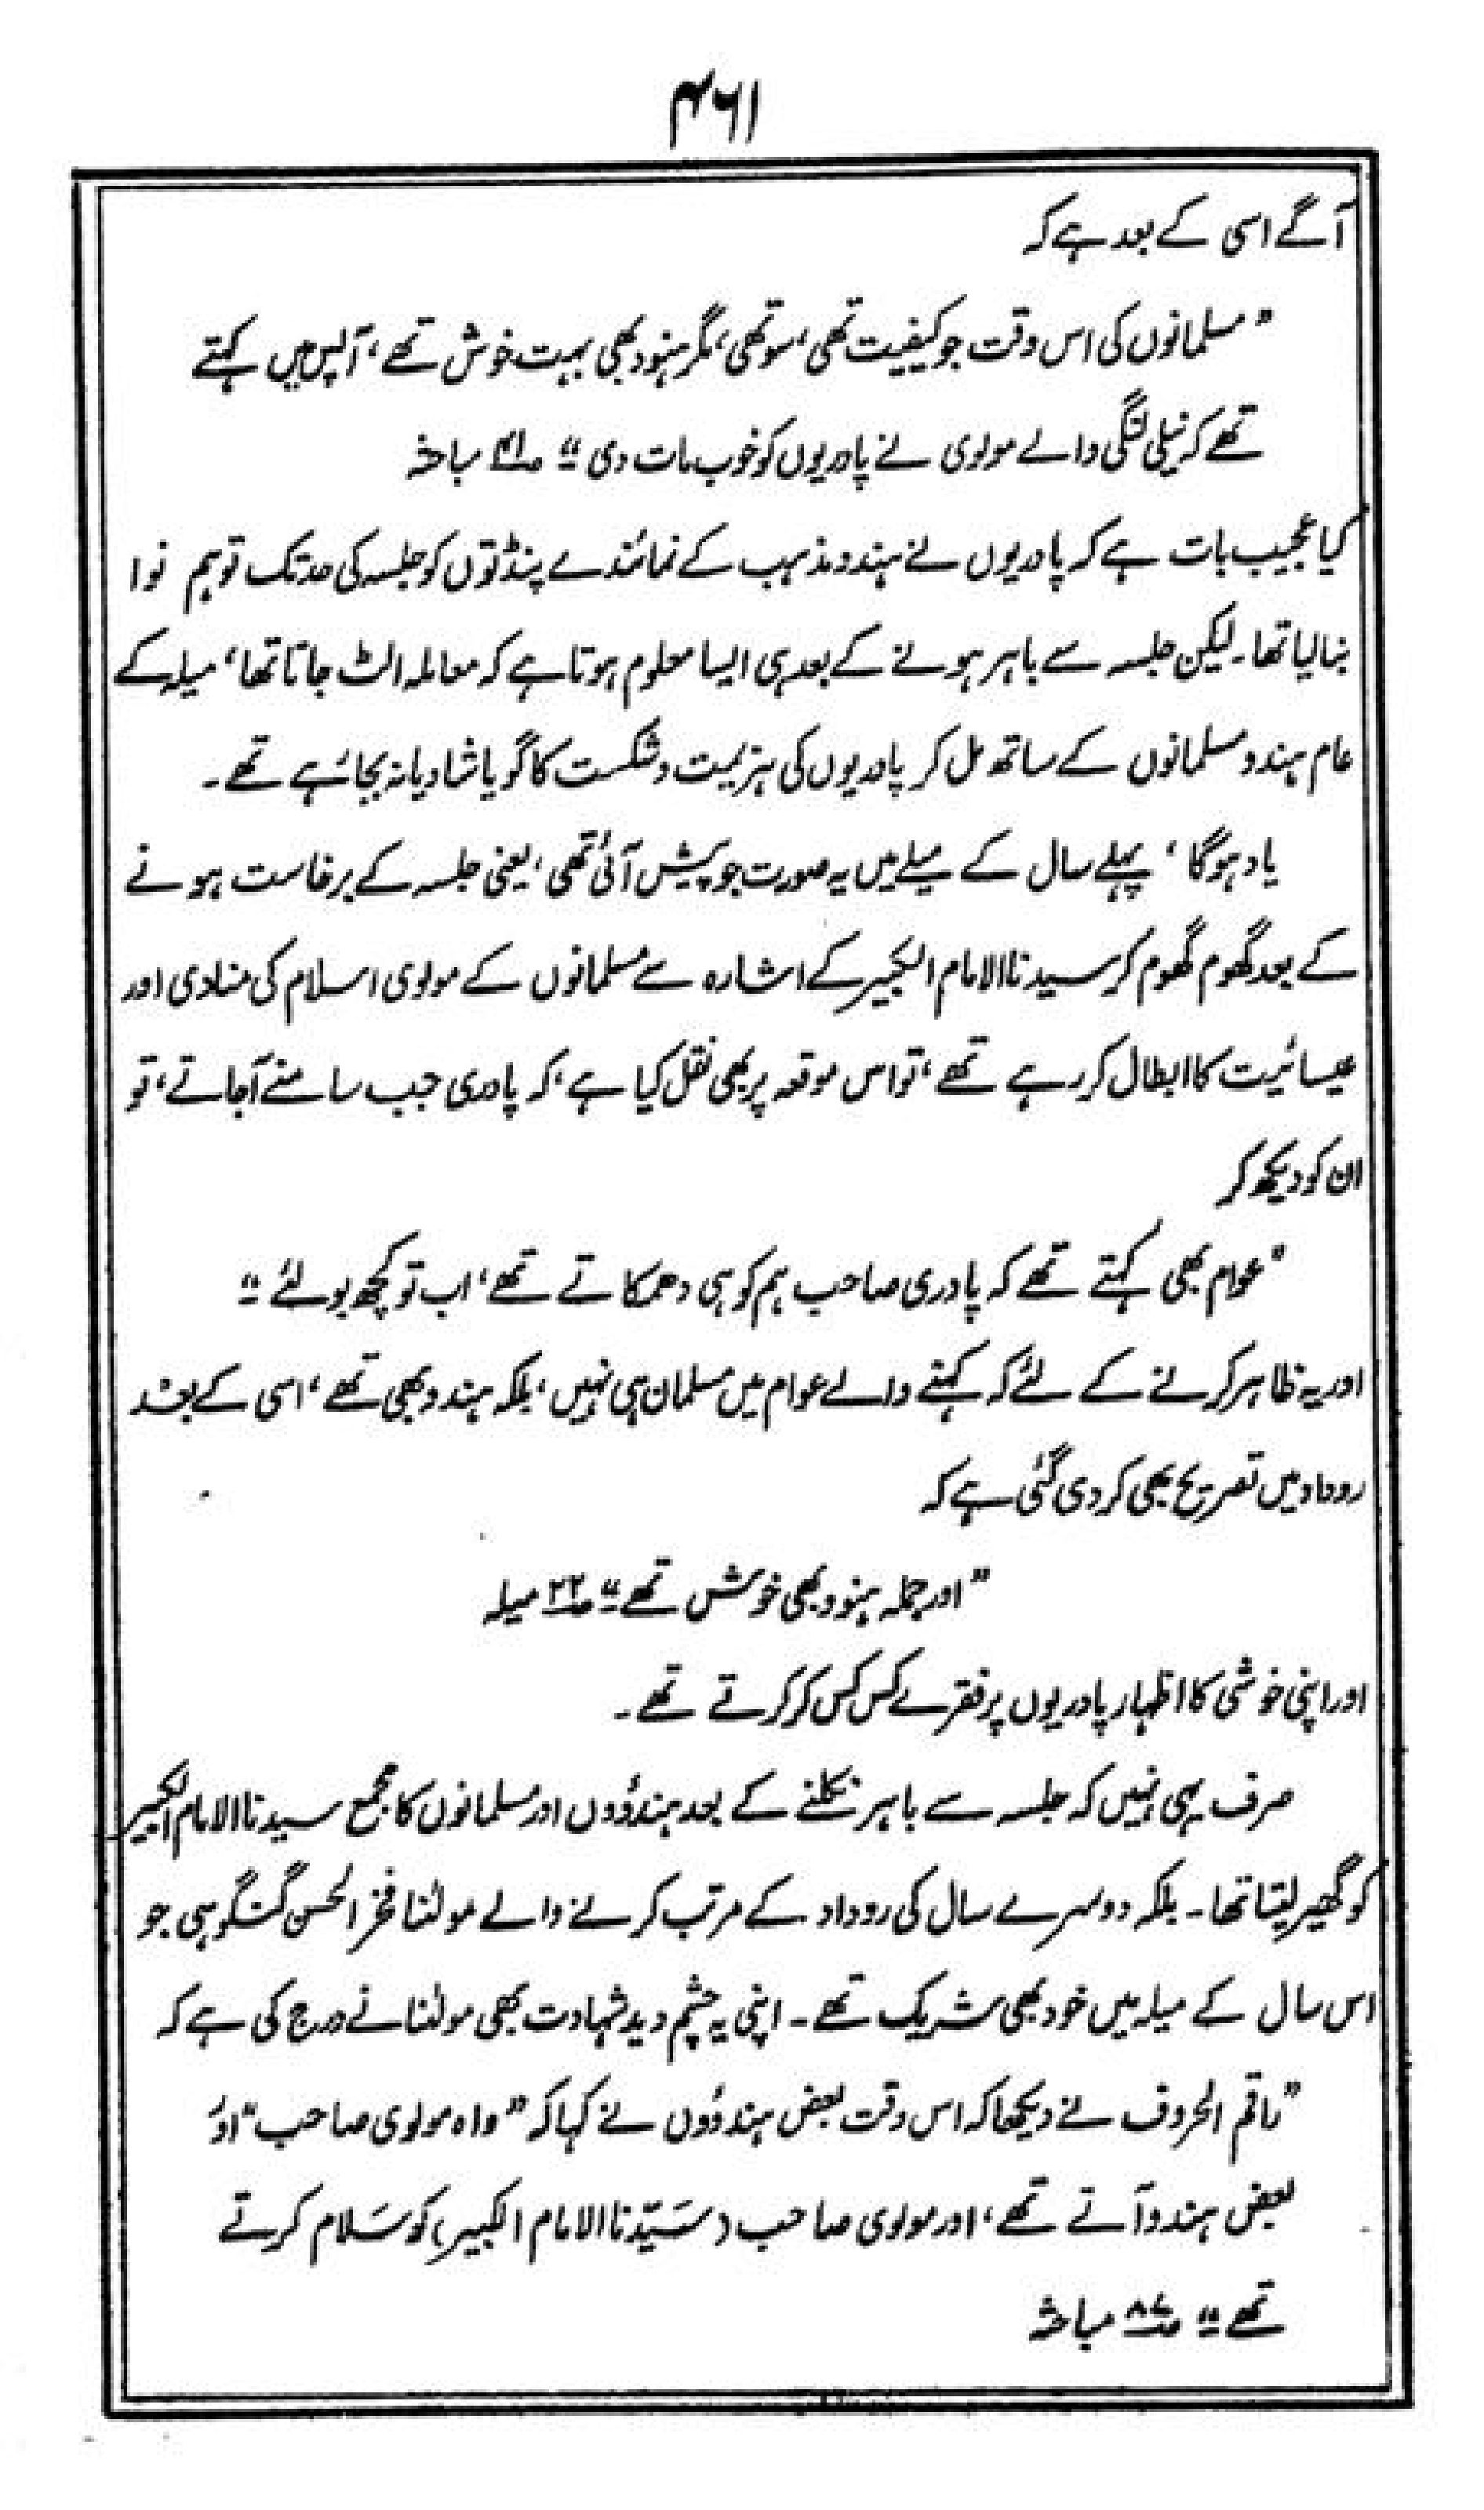 ۴۶۱
آگے اسی کے بعد ہے کہ
"مسلمانوں کی اس وقت جو کیفیت تھی، سو تھی، مگر ہنود بھی بہت خوش تھے، آپس میں کہتے
تھے کہ نیلی لنگی والے مولوی نے پادریوں کو خوب مات دی" مباحثہ
کیا عجیب بات ہے کہ پادریوں نے ہندو مذہب کے نمائندے پنڈتوں کو جلسہ کی حد تک تو ہم نوا
بنا لیا تھا۔ لیکن جلسہ سے باہر ہونے کے بعد ہی ایسا معلوم ہوتا ہے کہ معاملہ الٹ جاتا تھا، میلہ کے
عام ہندو مسلمانوں کے ساتھ مل کر پادریوں کی ہزیمت و شکست کا گویا شادیانہ بجا رہے تھے۔
یاد ہوگا، پہلے سال کے میلے میں یہ صورت جو پیش آئی تھی، یعنی جلسہ کے برخاست ہونے
کے بعد گھوم گھوم کر سیدنا الامام الکبیر کے اشارہ سے مسلمانوں کے مولوی اسلام کی منادی اور
عیسائیت کا ابطال کر رہے تھے، تو اس موقعہ پر بھی نقل کیا ہے، کہ پادری جب سامنے آجاتے، تو
ان کو دیکھ کر
"عوام بھی کہتے تھے کہ پادری صاحب ہم کو ہی دھمکاتے تھے، اب تو کچھ بولئے"
اور یہ ظاہر کرنے کے لئے کہ کہنے والے عوام میں مسلمان ہی نہیں، بلکہ ہندو بھی تھے، اسی کے بعد
روداد میں تصریح بھی کر دی گئی ہے کہ
"اور جملہ ہنود بھی خوش تھے" ص۲۲ میلہ
اور اپنی خوشی کا اظہار پادریوں پر فقرے کس کس کر کرتے تھے۔
صرف یہی نہیں کہ جلسہ سے باہر نکلنے کے بعد ہندوؤں اور مسلمانوں کا مجمع سیدنا الامام الکبیر
کو گھیر لیتا تھا۔ بلکہ دوسرے سال کی روداد کے مرتب کرنے والے مولٰنا فخر الحسن گنگوہی جو
اس سال کے میلہ میں خود بھی شریک تھے۔ اپنی یہ چشم دید شہادت بھی مولٰنا نے درج کی ہے کہ
"راقم الحروف نے دیکھا کہ اس وقت بعض ہندوؤں نے کہا کہ "واہ مولوی صاحب" اور
بعض ہندو آتے تھے، اور مولوی صاحب (سَیّدنا الامام الکبیر) کو سَلام کرتے
تھے" مباحثہ